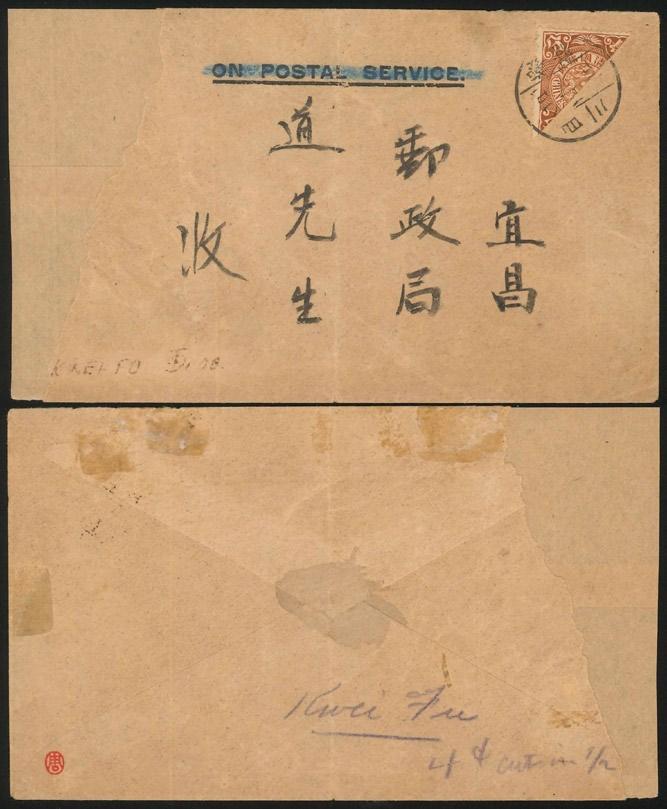 ON POSTAL SERVICE.
宜昌
郵政局
道先生
收
Kwei Fu
4 ¢ cut in 1/2